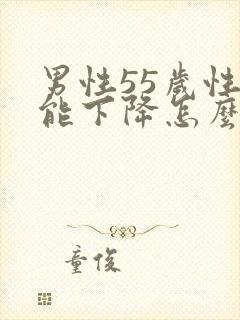 男性55歲性
能下降怎麼
童俊